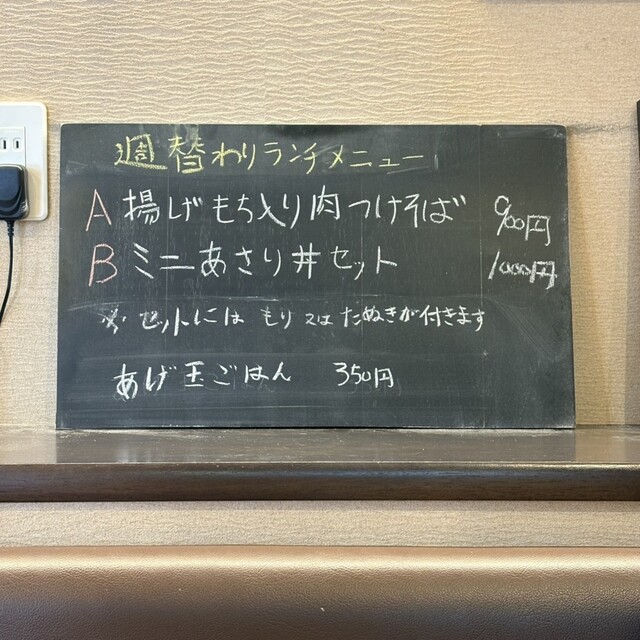 週替わりランチメニュー
A 揚げもち入り肉つけそば 900円
B ミニあさり丼セット 1000円
※セットには もり又は たぬきが付きます
あげ玉ごはん 350円